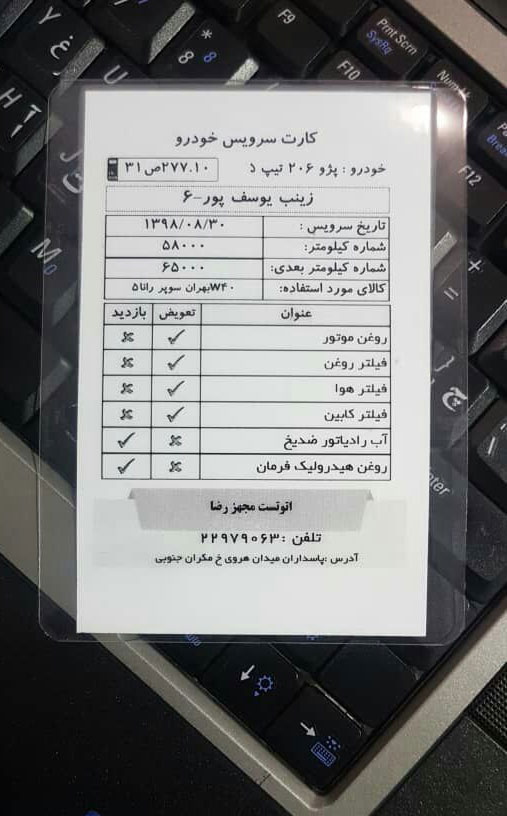 کارت سرویس خودرو
خودرو : پژو ۲۰۶ تیپ ۵ ۲۷۷.۱۰ص۳۱
زینب یوسف پور-۶
تاریخ سرویس : ۱۳۹۸/۰۸/۳۰
شماره کیلومتر: ۵۸۰۰۰
شماره کیلومتر بعدی: ۶۵۰۰۰
کالای مورد استفاده: W۴۰بهران سوپر رانا۵
عنوان تعویض بازدید
روغن موتور
فیلتر روغن
فیلتر هوا
فیلتر کابین
آب رادیاتور ضدیخ
روغن هیدرولیک فرمان
اتوتست مجهز رضا
تلفن :۲۲۹۷۹۰۶۳
آدرس :پاسداران میدان هروی خ مکران جنوبی
F9
Prnt Scrn
SysRq
F10
F12
* 8 8
U
M 0